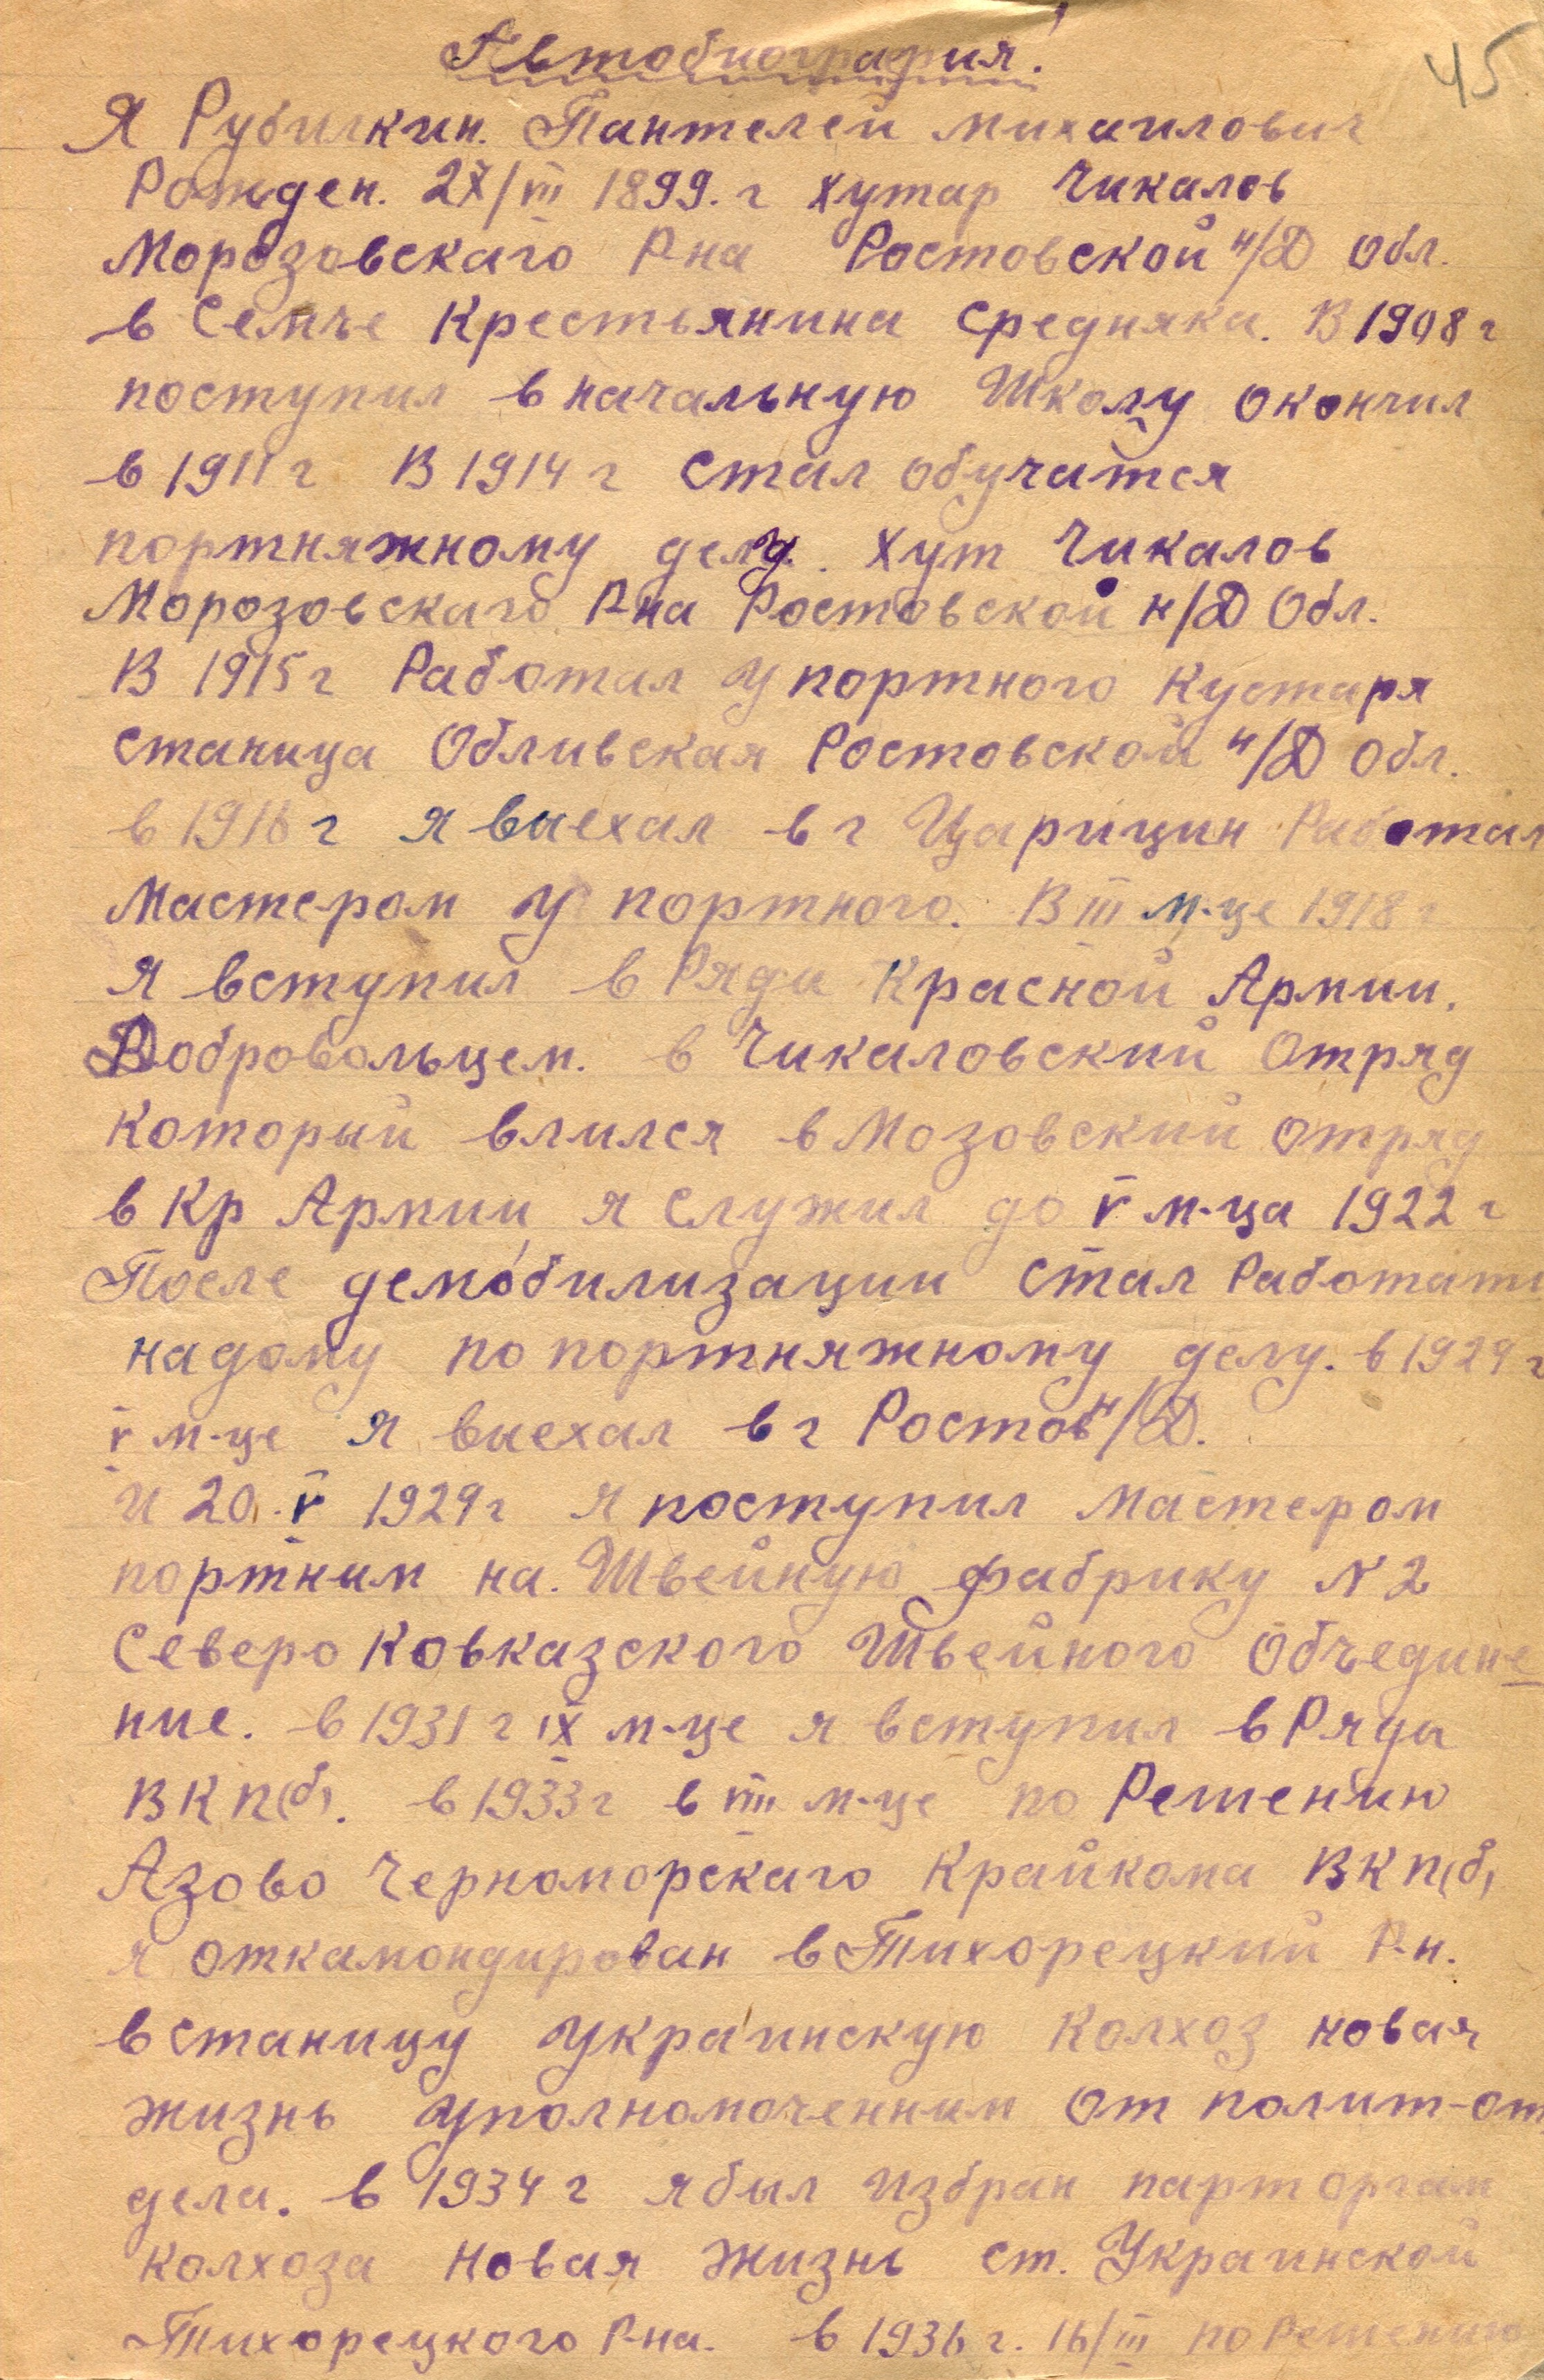 Автобиография!
45
Я Рубилкин. Пантелей михаилович
Рожден. 27/VII 1899. г хутар Чикалов
Морозовскаго Р-на Ростовской н/Д обл.
в Семье Крестьянина средняка. В 1908 г
поступил в начальную Школу окончил
в 1911 г В 1914 г стал обучатся
портняжному делу. Хут Чикалов
Морозовскаго Р-на Ростовской н/Д Обл.
В 1915 г Работал у портного Кустаря
станица Обливская Ростовской н/Д обл.
в 1916 г я выехал в г Царицин Работал
Мастером у портного. В III м-це 1918 г
я вступил в Ряды Красной Армии.
Добровольцем. в Чикаловский Отряд
который влился в Мозовский отряд
в Кр Армии я служил до V м-ца 1922 г
После демобилизации стал Работать
на дому по портняжному делу. в 1929 г
V м-це я выехал в г Ростов н/Д.
и 20. V 1929 г я поступил мастером
портным на. Швейную фабрику N 2
Северо Ковказского Швейного Объедине
ние. в 1931 г IX м-це я вступил в Ряды
ВКП(б). в 1933 г в VIII м-це по Решению
Азово Черноморскаго Крайкома ВКП(б)
я откамондирован в Тихорецкий Р-н.
в станицу Украинскую Колхоз новая
жизнь уполномоченным от полит-от
дела. в 1934 г я был избран парторгам
колхоза Новая Жизнь ст. Украинской
Тихорецкого Р-на. в 1936 г. 16/III по Решению